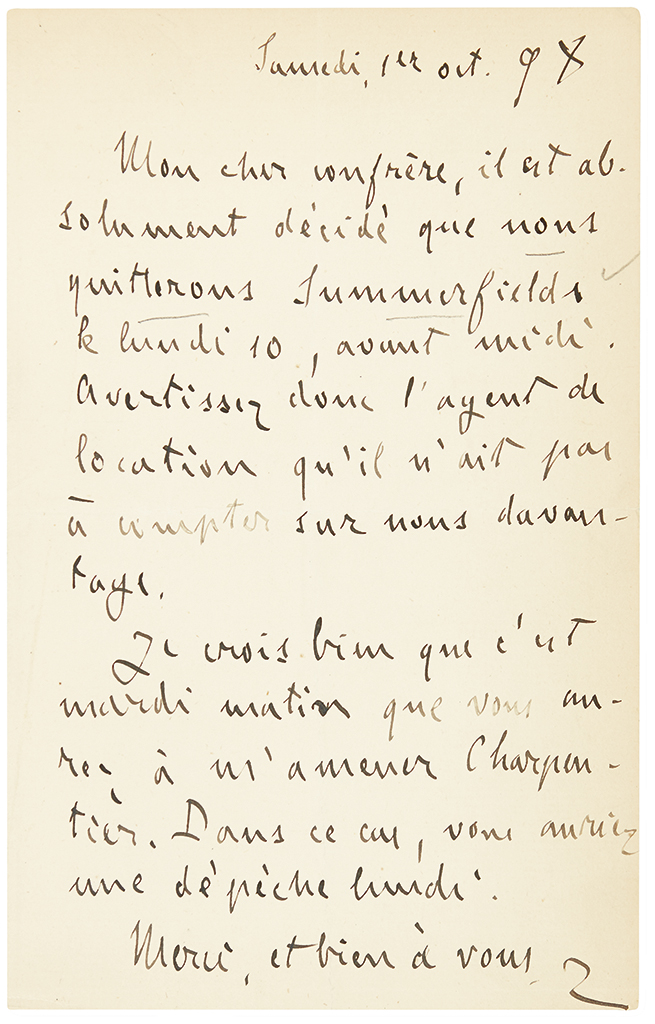 Samedi, 1er oct. 98
Mon cher confrère, il est ab-
solument décidé que nous
quitterons Summerfields
le lundi 10, avant midi.
Avertissez donc l'agent de
location qu'il n'ait pas
à compter sur nous davan-
tage.
Je crois bien que c'est
mardi matin que vous au-
rez à m'amener Charpen-
tier. Dans ce cas, vous auriez
une dépêche lundi.
Merci, et bien à vous
Z